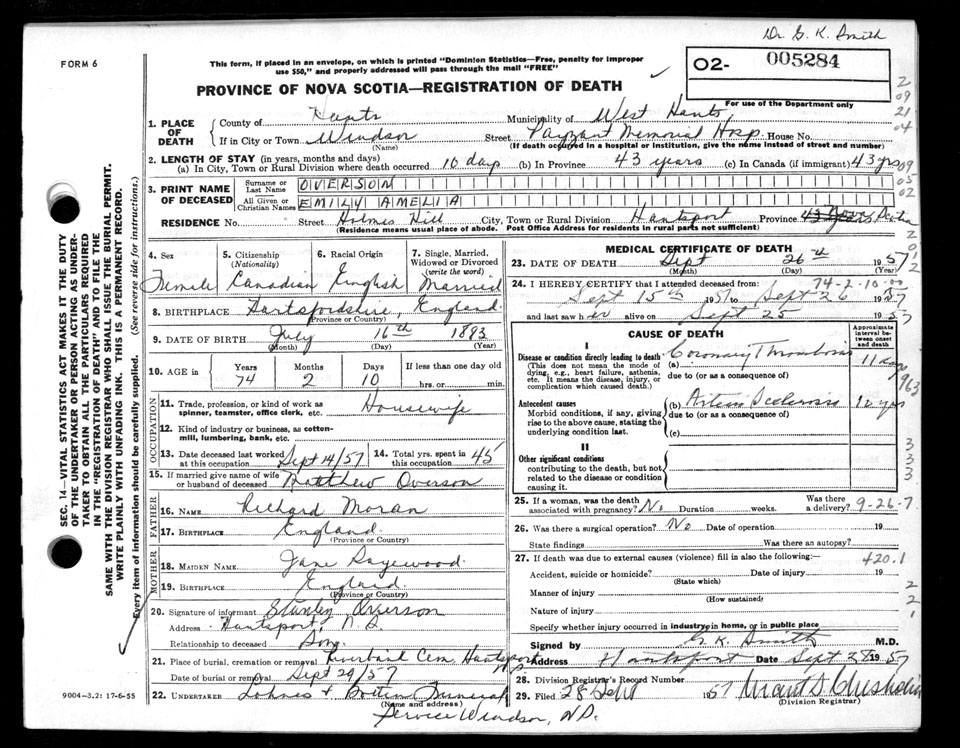 Dr. G. K. Smith
FORM 6
This form, if placed in an envelope, on which is printed "Dominion Statistics—Free, penalty for improper
use $50," and properly addressed will pass through the mail "FREE"
02- 005284
For use of the Department only
PROVINCE OF NOVA SCOTIA—REGISTRATION OF DEATH
2
09
21
04
09
05
02
SEC. 14—VITAL STATISTICS ACT MAKES IT THE DUTY
OF THE UNDERTAKER OR PERSON ACTING AS UNDER-
TAKER TO OBTAIN ALL THE PARTICULARS REQUIRED
IN THE "REGISTRATION OF DEATH" AND TO FILE THE
SAME WITH THE DIVISION REGISTRAR WHO SHALL ISSUE THE BURIAL PERMIT.
WRITE PLAINLY WITH UNFADING INK. THIS IS A PERMANENT RECORD.
Every item of information should be carefully supplied. (See reverse side for instructions.)
1. PLACE OF DEATH
County of Hants Municipality of West Hants
If in City or Town Windsor Street Payzant Memorial Hosp. House No.
(Name) (If death occurred in a hospital or institution, give the name instead of street and number)
2. LENGTH OF STAY (in years, months and days)
(a) In City, Town or Rural Division where death occurred 10 days (b) In Province 43 years (c) In Canada (if immigrant) 43 yrs
3. PRINT NAME OF DECEASED
Surname or Last Name OVERSON
All Given or Christian Names EMILY AMELIA
RESIDENCE No. Street Holmes Hill City, Town or Rural Division Hantsport Province 43 Years
(Residence means usual place of abode. Post Office Address for residents in rural parts not sufficient)
4. Sex 5. Citizenship (Nationality) 6. Racial Origin 7. Single, Married, Widowed or Divorced (write the word)
Female Canadian English Married
8. BIRTHPLACE Hantsfordshire, England
(Province or Country)
9. DATE OF BIRTH July 16th 1883
(Month) (Day) (Year)
10. AGE in Years Months Days If less than one day old
74 2 10 hrs. or min.
OCCUPATION
11. Trade, profession, or kind of work as spinner, teamster, office clerk, etc. Housewife
12. Kind of industry or business, as cotton-mill, lumbering, bank, etc.
13. Date deceased last worked at this occupation Sept 14/57 14. Total yrs. spent in this occupation 45
15. If married give name of wife or husband of deceased Matthew Overson
FATHER
16. NAME Richard Moran
17. BIRTHPLACE England
(Province or Country)
MOTHER
18. MAIDEN NAME Jane
19. BIRTHPLACE England
(Province or Country)
20. Signature of informant Stanley Overson
Address Hantsport, N.S.
Relationship to deceased Son
21. Place of burial, cremation or removal Riverbank Cem. Hantsport N.S.
Date of burial or removal Sept 29/57
22. UNDERTAKER Lohnes + Funeral
(Name and address)
Service Windsor, N.S.
9004—3.2: 17-6-55
MEDICAL CERTIFICATE OF DEATH
23. DATE OF DEATH Sept 26th 1957
(Month) (Day) (Year)
24. I HEREBY CERTIFY that I attended deceased from: 74-2-10.00
Sept 15th 1957 to Sept 26 1957
and last saw her alive on Sept 25 1957
CAUSE OF DEATH
Approximate interval between onset and death
I
Disease or condition directly leading to death
(This does not mean the mode of dying, e.g., heart failure, asthenia, etc. It means the disease, injury, or complication which caused death.)
(a) Coronary Thrombosis 11 days
due to (or as a consequence of)
Antecedent causes
Morbid conditions, if any, giving rise to the above cause, stating the underlying condition last.
(b) Arterio Sclerosis 10 yrs
due to (or as a consequence of)
(c)
II
Other significant conditions
contributing to the death, but not related to the disease or condition causing it.
25. If a woman, was the death associated with pregnancy? No Duration weeks. Was there a delivery? 9-26-7
26. Was there a surgical operation? No Date of operation 19
State findings Was there an autopsy?
27. If death was due to external causes (violence) fill in also the following:— 420.1
Accident, suicide or homicide? Date of injury 19
(State which)
Manner of injury
(How sustained)
Nature of injury
Specify whether injury occurred in industry, in home, or in public place
Signed by G. K. Smith M.D.
Address Hantsport Date Sept 28 1957
28. Division Registrar's Record Number
29. Filed 28 Sept 1957
(Division Registrar)